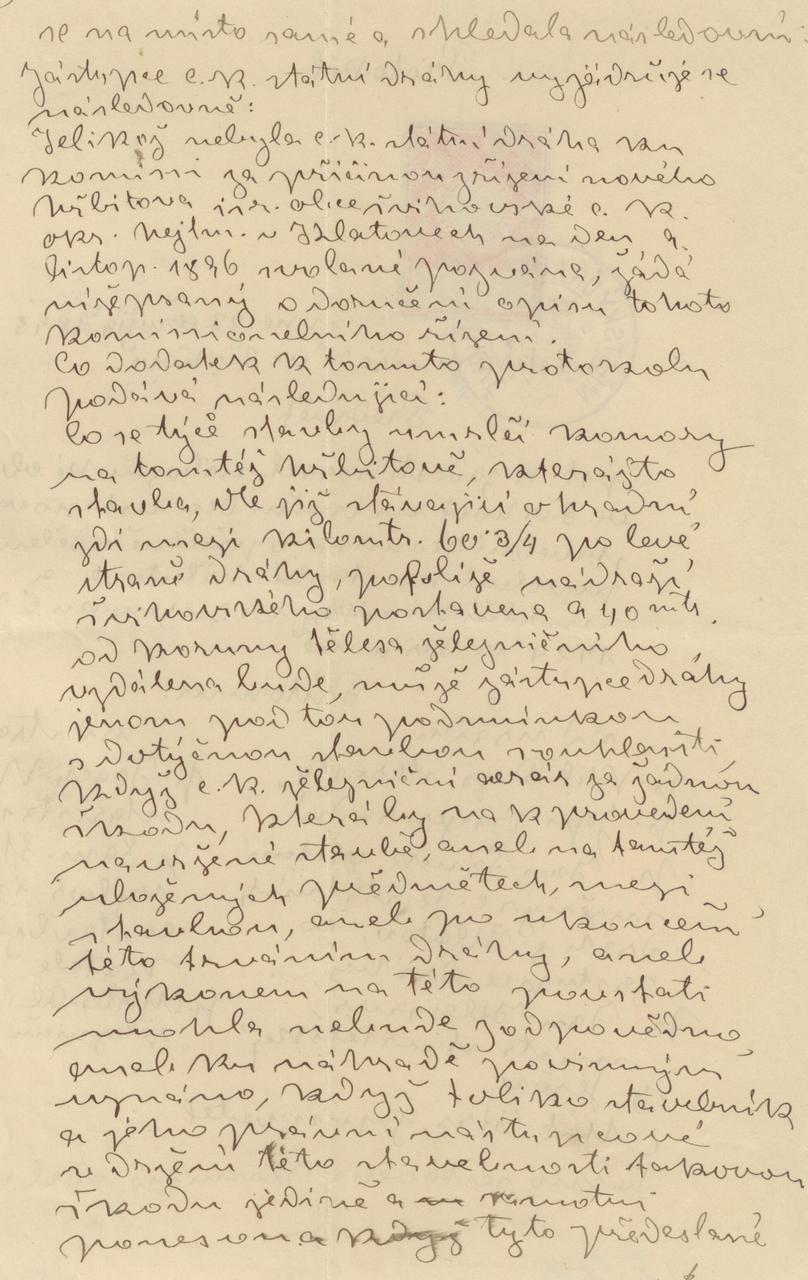 se na místo samé a shledala následovní:
Zástupce c. k. státní dráhy vyjádřuje se
následovně:
Jelikož nebyla c. k. státní dráha ku
komisi za příčinou zřízení nového
hřbitova isr. obce švihovské c. k.
okr. hejtm. v Klatovech na den 9.
listop. 1896 svolané pozvána, žádá
nížepsaný o doručení opisu tohoto
komisionelního řízení.
Co dodatek k tomuto protokolu
podává následující:
Co se týče stavby umrlčí komory
na tomtéž hřbitově, kterážto
stavba, dle již stávající ohradní
zdi mezi kilomtr. 60·3/4 po levé
straně dráhy, poblíže nádraží
švihovského postavena a 40 mtr.
od koruny tělesa železničního
vzdálena bude, může zástupce dráhy
jenom pod tou podmínkou
s dotyčnou stavbou souhlasiti,
když c. k. železniční aerár za žádnou
škodu, která by na k provedení
navržené stavbě, aneb na tamtéž
uložených předmětech, mezi
stavbou, aneb po ukončení
této trváním dráhy, aneb
výkonem na této povstati
mohla nebude zodpovědno,
aneb ku náhradě povinným
uznáno, když toliko stavebník
a jeho právní nástupcové
v držení této stavebnosti takovou
škodu jedině a samotni
ponesou a když tyto předeslané